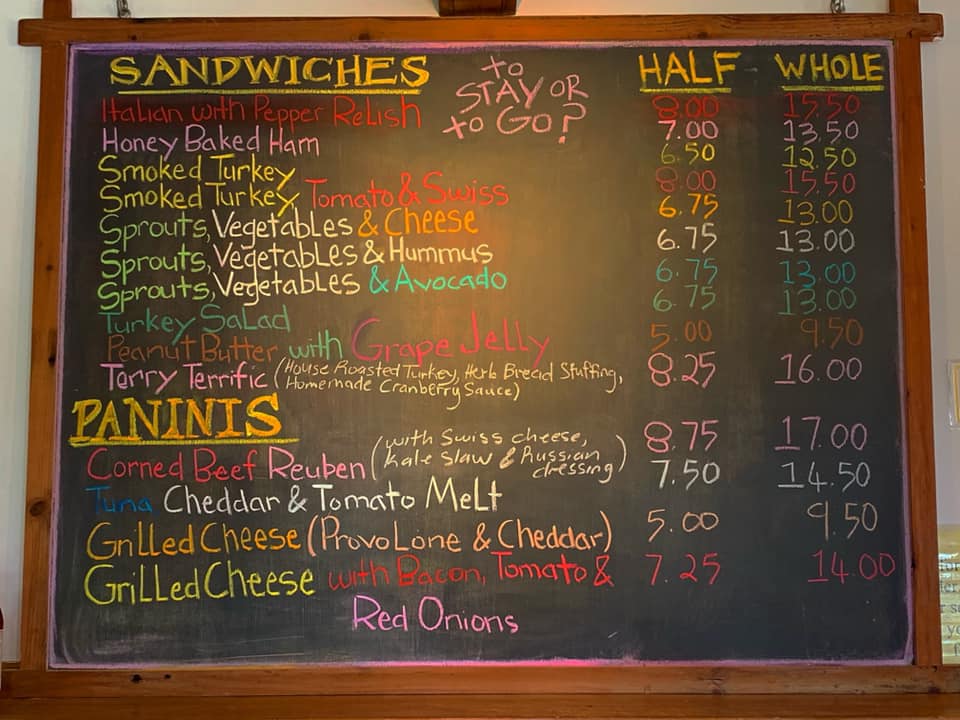 SANDWICHES to STAY OR to GO? HALF WHOLE
Italian with Pepper Relish 8.00 15.50
Honey Baked Ham 7.00 13.50
Smoked Turkey 6.50 12.50
Smoked Turkey, Tomato & Swiss 8.00 15.50
Sprouts, Vegetables & Cheese 6.75 13.00
Sprouts, Vegetables & Hummus 6.75 13.00
Sprouts, Vegetables & Avocado 6.75 13.00
Turkey Salad 6.75 13.00
Peanut Butter with Grape Jelly 5.00 9.50
Terry Terrific (House Roasted Turkey, Herb Bread Stuffing, Homemade Cranberry Sauce) 8.25 16.00
PANINIS
Corned Beef Reuben (with Swiss cheese, Kale Slaw & Russian dressing) 8.75 17.00
Tuna Cheddar & Tomato Melt 7.50 14.50
Grilled Cheese (Provolone & Cheddar) 5.00 9.50
Grilled Cheese with Bacon, Tomato & 7.25 14.00
Red Onions